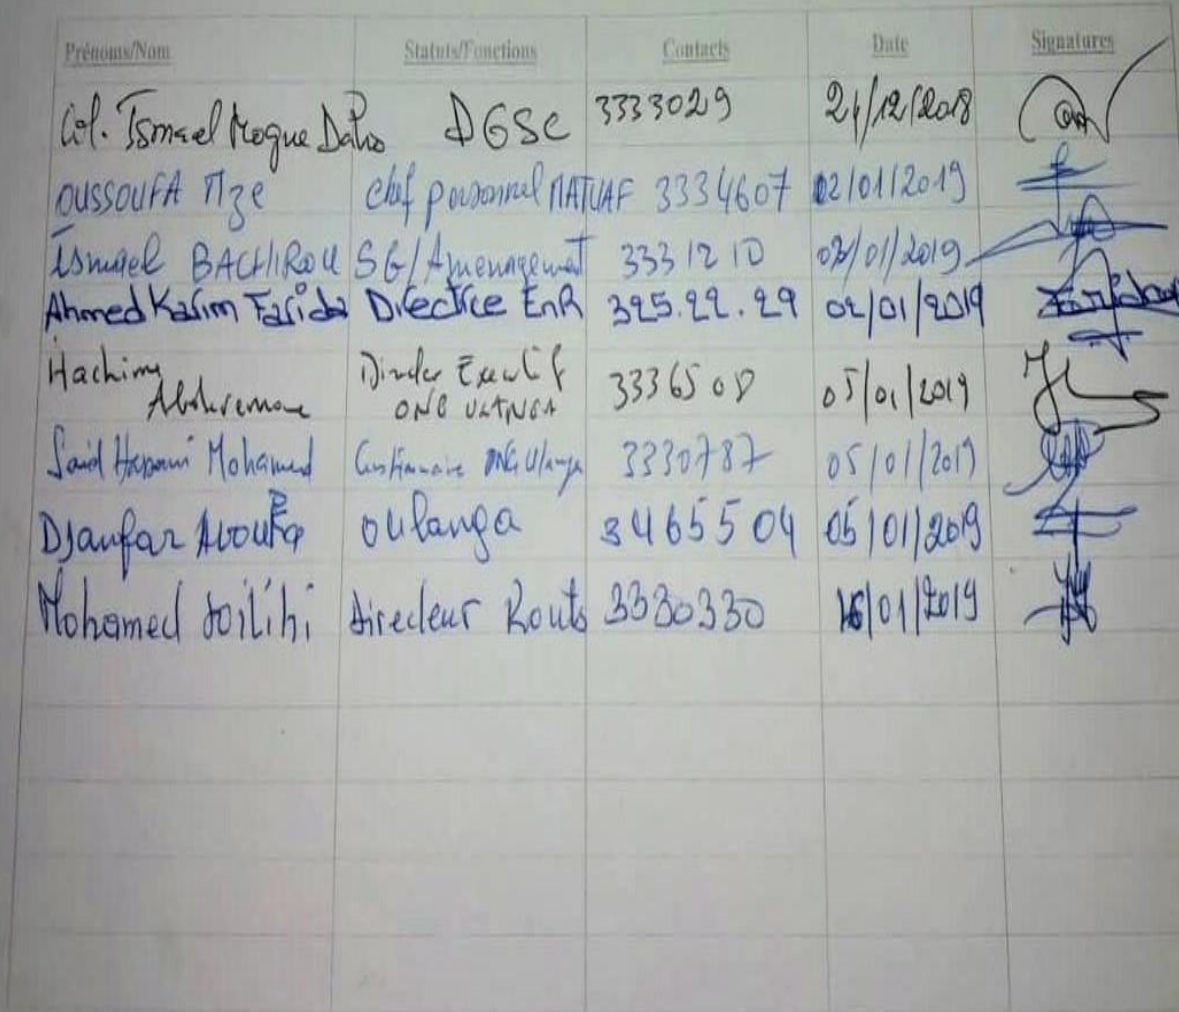 Prénoms/Nom Statuts/Fonctions Contacts Date Signatures
Col. Ismael Mogne Daho DGSC 3333029 24/12/2018
OUSSOUFA Mze chef personnel MATUAF 3334607 02/01/2019
Ismael BACHIROU SG/Amenagement 333 12 10 03/01/2019
Ahmed Karim Farida Directrice EnR 325.22.29 02/01/2019
Hachim Abderemane
ONG ULANGA 33365 08 05/01/2019
Said Hassani Mohamed ONG Ulanga 3330787 05/01/2019
Djaufar Oulanga 3465504 05/01/2019
Mohamed Soilihi Directeur Routs 3330330 16/01/2019